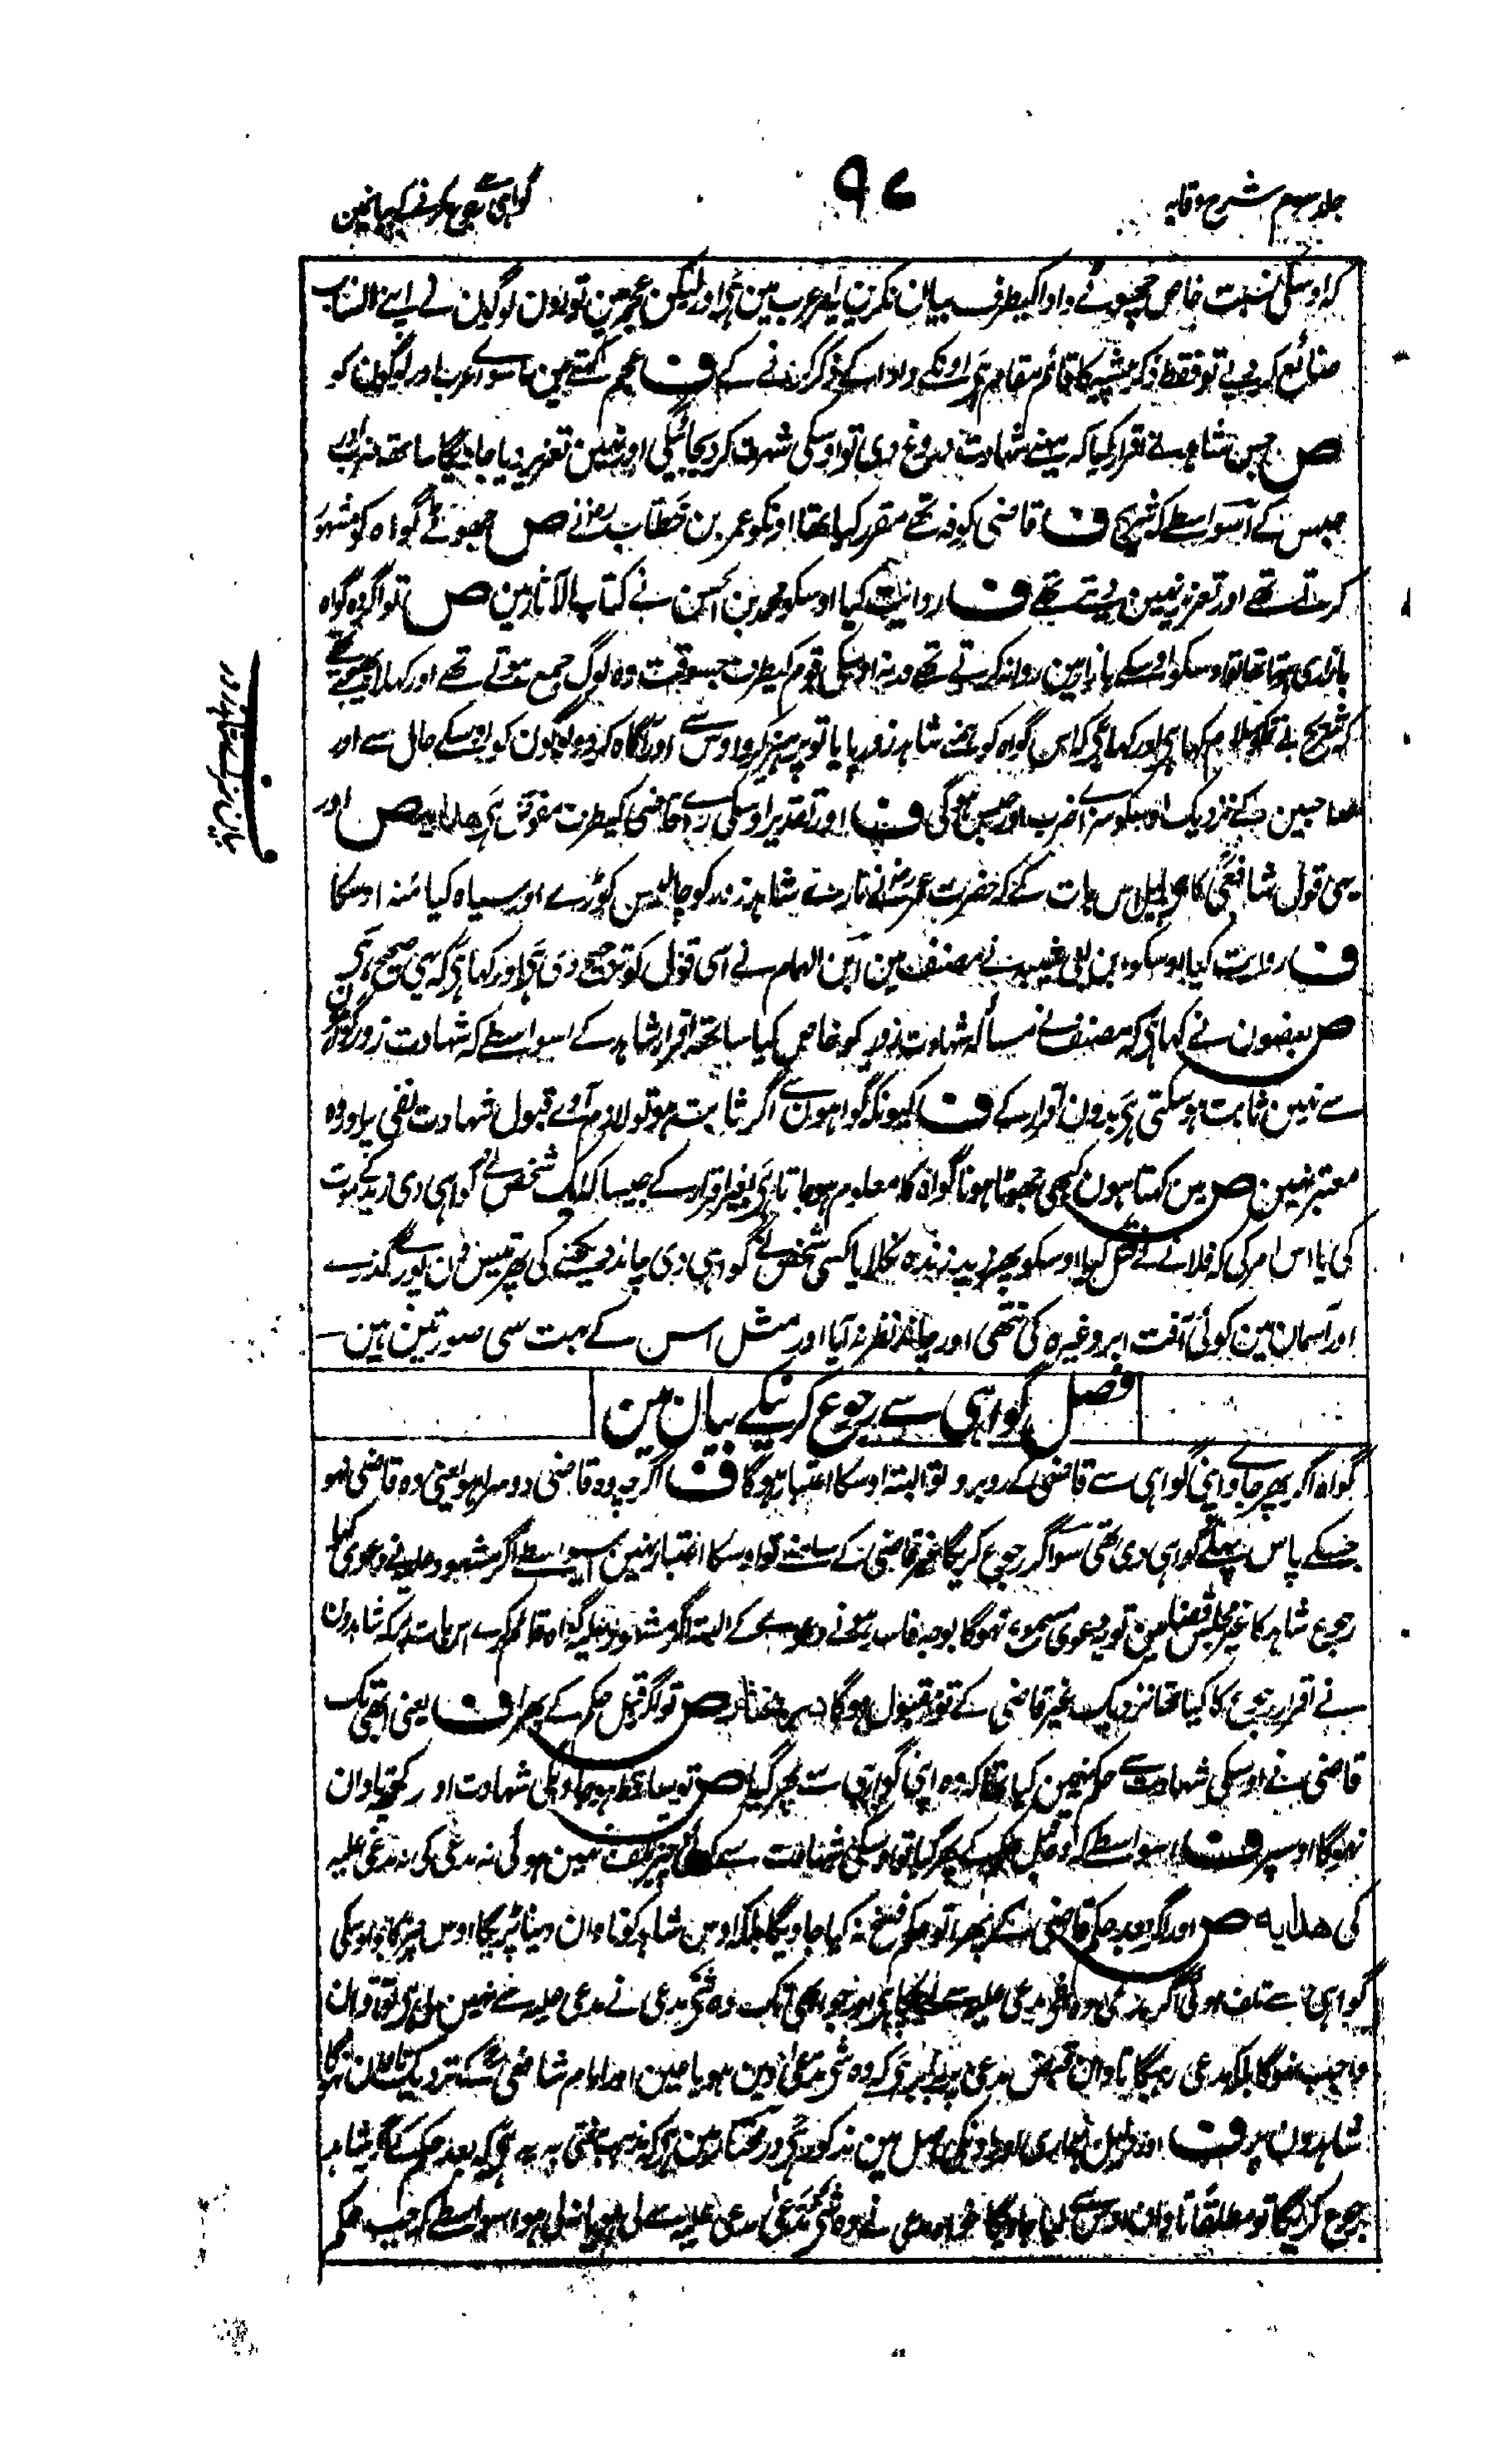 جلد سوم شرح وقایہ
٩٧
گواہی سے رجوع کرنے کے بیانمین
کہ اوسکی نسبت خاص چھوٹے دادا کیطرف بیان نکرین یہ امر عرب مین ہی اور لیکن عجم مین تو اون لوگون نے اپنے انساب
ضائع کر دیے تو فقط ذکر پیشہ کا قائم مقام ہی اونکے دادا کے ذکر کرنے کے ف عجم کہتے ہین ماسواے عرب اور لوگون کو
ص جس شاہد نے اقرار کیا کہ مینے شہادت دروغ دی تو اوسکی شہرت کر دیجائیگی اور نہین تعزیر دیا جاویگا ساتھ ضرب اور
حبس کے اسواسطے کہ شریح ف قاضی کوفہ تھے مقرر کیا تھا اونکو عمر بن خطاب رض نے ص جھوٹے گواہ کو مشہور
کرتے تھے اور تعزیر نہین دیتے تھے ف روایت کیا اوسکو محمد بن الحسن نے کتاب الآثار مین ص تو اگر وہ گواہ
بازاری ہوتا تھا تو اوسکو اوسکے بازار مین روانہ کرتے تھے ورنہ اوسکی قوم کیطرف جسوقت وہ لوگ جمع ہوتے تھے اور کہلا بھیجتے تھے
کہ شریح نے تمکو سلام کہا ہی اور کہا ہی کہ اس گواہ کو ہمنے شاہد زور پایا تو پرہیز کرو اوس سے اور آگاہ کر دو لوگون کو اوسکے حال سے اور
صاحبین کے نزدیک اوسکو سزا ضرب اور حبس ہوگی ف اور تقدیر اوسکی راے قاضی کیطرف مفوض ہی ہدایہ ص اور
یہی قول شافعی کا ہی بدلیل اس بات کے کہ حضرت عمر رض نے مارے شاہد زور کو چالیس کوڑے اور سیاہ کیا منہ اوسکا
ف روایت کیا اوسکو ابن ابی شیبہ نے مصنف مین ابن الہمام نے اسی قول کو ترجیح دی ہی اور کہا ہی کہ یہی صحیح ہی
ص بعضون نے کہا ہی کہ مصنف نے مسئلہ شہادت زور کو خاص کیا ساتھ اقرار شاہد کے اسواسطے کہ شہادت زور گواہون
سے نہین ثابت ہوسکتی ہی بدون اقرار کے ف کیونکہ گواہون سے اگر ثابت ہو تو لازم آوے قبول شہادت نفی پر اور وہ
معتبر نہین ص مین کہتا ہون کبھی جھوٹا ہونا گواہ کا معلوم ہو جاتا ہی بغیر اقرار کے جیسا کہ ایک شخص نے گواہی دی زید کے موت
کی یا اس امر کی کہ فلانے نے قتل کیا اوسکو پھر زید زندہ نکلا یا کسی شخص نے گواہی دی چاند دیکھنے کی پھر تیس دن پورے گذرے
اور آسمان مین کوئی آفت ابر وغیرہ کی نتھی اور چاند نظر نہ آیا اور مثل اس کے بہت سی صورتین ہین
فصل گواہی سے رجوع کرنیکے بیان مین
گواہ اگر پھر جاوے اپنی گواہی سے قاضی کے روبرو تو البتہ اوسکا اعتبار ہوگا ف اگرچہ وہ قاضی دوسرا ہو یعنی وہ قاضی نہو
جسکے پاس پہلے گواہی دی تھی سو اگر رجوع کریگا غیر قاضی کے سامنے تو اوسکا اعتبار نہین اسواسطے اگر مشہود علیہ نے دعوی کیا
رجوع شاہد کا غیر مجلس قضا مین تو یہ دعوی مسموع نہوگا بوجہ فاسد ہونے دعوے کے البتہ اگر مشہود علیہ گواہ قائم کرے اس بات پر کہ شاہدون
نے اقرار رجوع کا کیا تھا نزدیک غیر قاضی کے تو مقبول ہوگا در مختار ص تو اگر قبل حکم کے پھرا ف یعنی ابھی تک
قاضی نے اوسکی شہادت سے حکم نہین کیا تھا کہ وہ اپنی گواہی سے پھر گیا ص تو ساقط ہو جاویگی شہادت اور کچھ تاوان
نہوگا اوسپر ف اسواسطے کہ وہ قبل حکم کے پھر گیا تو اوسکی شہادت سے کوئی چیز تلف نہین ہوئی نہ مدعی کی نہ مدعی علیہ
کی ہدایہ ص اور اگر بعد حکم قاضی کے پھرا تو حکم فسخ نہ کیا جاویگا بلکہ اوس شاہد کو تاوان دینا پڑیگا اوس چیز کا جو اوسکی
گواہی سے تلف ہوئی اگر مدعی وہ شی مدعی علیہ سے لے چکا ہی اور جو ابھی تک وہ شی مدعی نے مدعی علیہ سے نہین لی ہی تو تاوان
واجب نہوگا بلکہ مدعی رہیگا تاوان قبض مدعی پر برابر ہی کہ وہ شی مدعی دین ہو یا عین اور امام شافعی کے نزدیک تاوان نہوگا
شاہدون پر ف اور دلیل ہماری اور اونکی اصل مین مذکور ہی در مختار مین ہی کہ مذہب مفتی بہ یہ ہی کہ بعد حکم کے اگر شاہد
رجوع کریگا تو مطلقا تاوان اوس سے لیا جاویگا خواہ مدعی نے وہ شی مدعی مدعی علیہ سے لی ہو یا نہ لی ہو اسواسطے کہ جب حکم